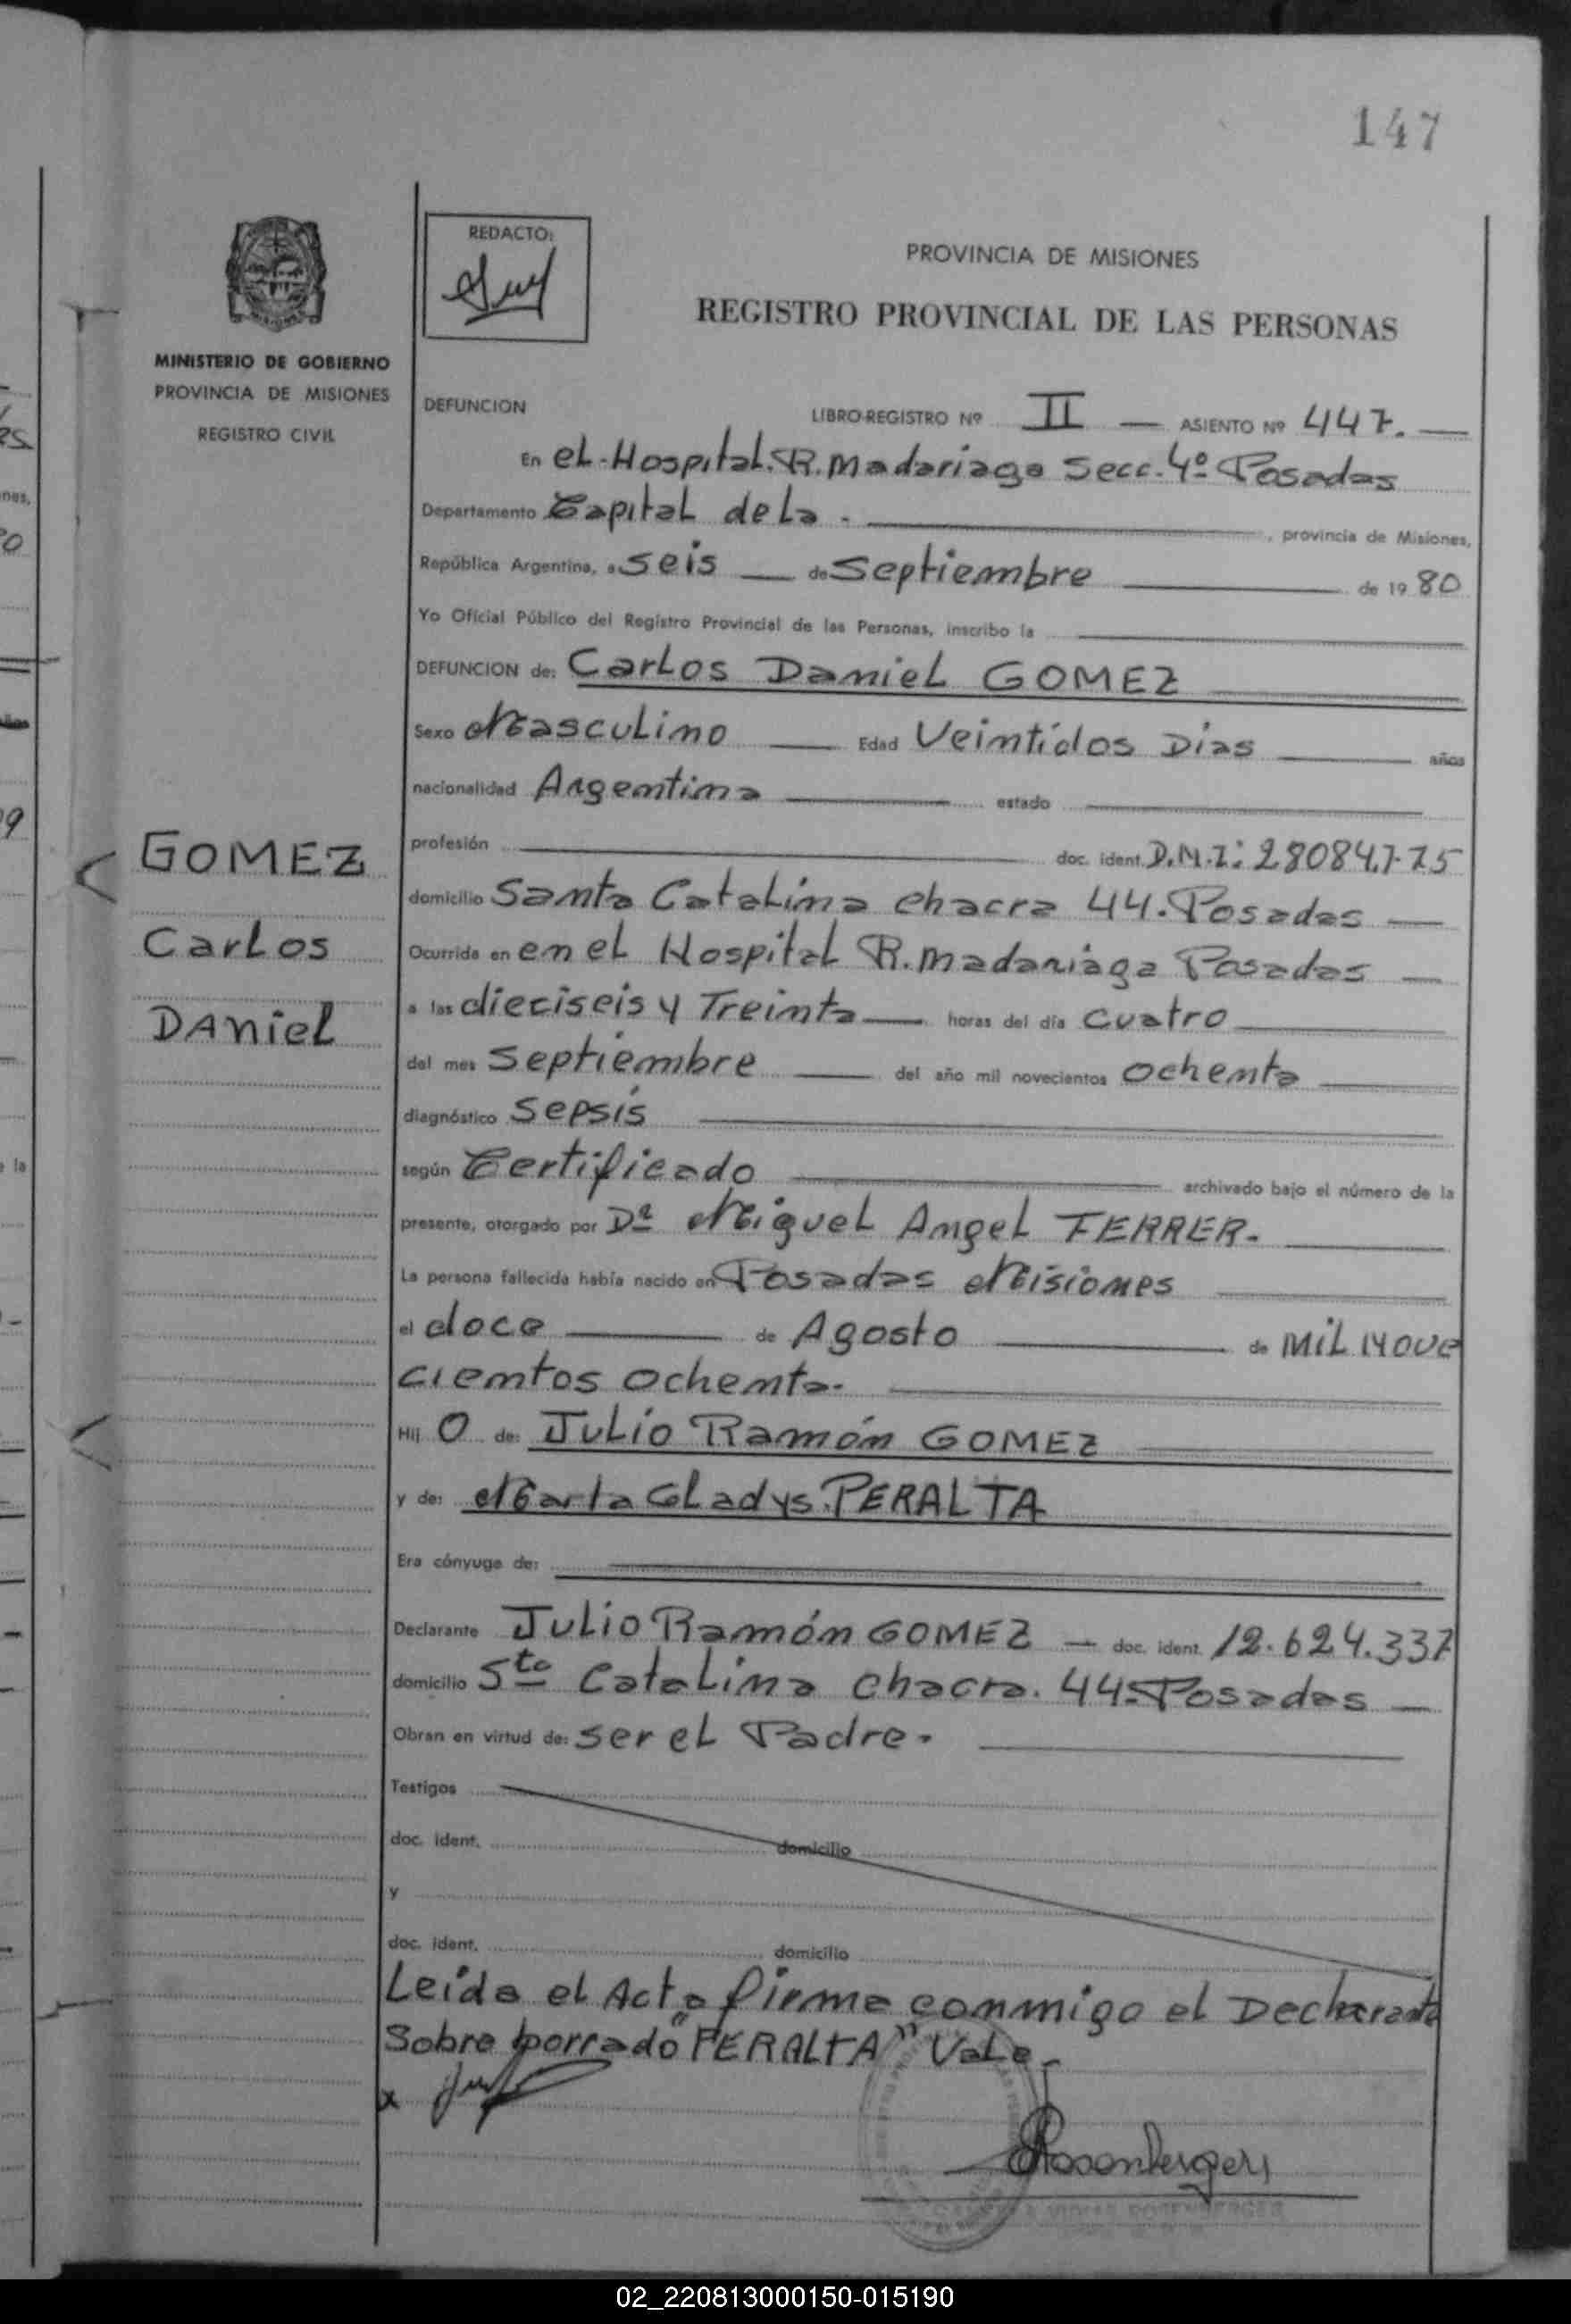 147
REDACTO:
PROVINCIA DE MISIONES
REGISTRO PROVINCIAL DE LAS PERSONAS
MINISTERIO DE GOBIERNO
PROVINCIA DE MISIONES
REGISTRO CIVIL
DEFUNCION LIBRO-REGISTRO Nº II — ASIENTO Nº 447. —
En el Hospital. R. Madariaga Secc. 4º Posadas
Departamento Capital de La . —, provincia de Misiones,
República Argentina, a seis — de Septiembre — de 19 80
Yo Oficial Público del Registro Provincial de las Personas, inscribo la —
DEFUNCION de: Carlos Daniel GOMEZ
Sexo Masculino — Edad Veintidos Dias — años
nacionalidad Argentina — estado —
profesión — doc. ident. D.N.I: 28084.775
GOMEZ
Carlos
DAniel
domicilio Santa Catalina chacra 44. Posadas —
Ocurrida en en el Hospital R. Madariaga Posadas —
a las dieciseis y Treinta — horas del día cuatro —
del mes Septiembre — del año mil novecientos ochenta —
diagnóstico Sepsis —
según Certificado — archivado bajo el número de la
presente, otorgado por Dr Miguel Angel FERRER. —
La persona fallecida había nacido en Posadas Misiones —
el doce — de Agosto — de Mil Nove
cientos ochenta. —
Hij o de: Julio Ramón GOMEZ —
y de: Marta Gladys. PERALTA
Era cónyuge de: —
Declarante Julio Ramón GOMEZ — doc. ident. 12.624.337
domicilio Sta Catalina chacra. 44. Posadas —
Obran en virtud de: ser el Padre. —
Testigos
doc. ident. domicilio
y
doc. ident. domicilio
Leida el Acta firma conmigo el Declarante
Sobre borrado "PERALTA" Vale.
x
Rosenberger
ROSENBERGER
02_220813000150-015190